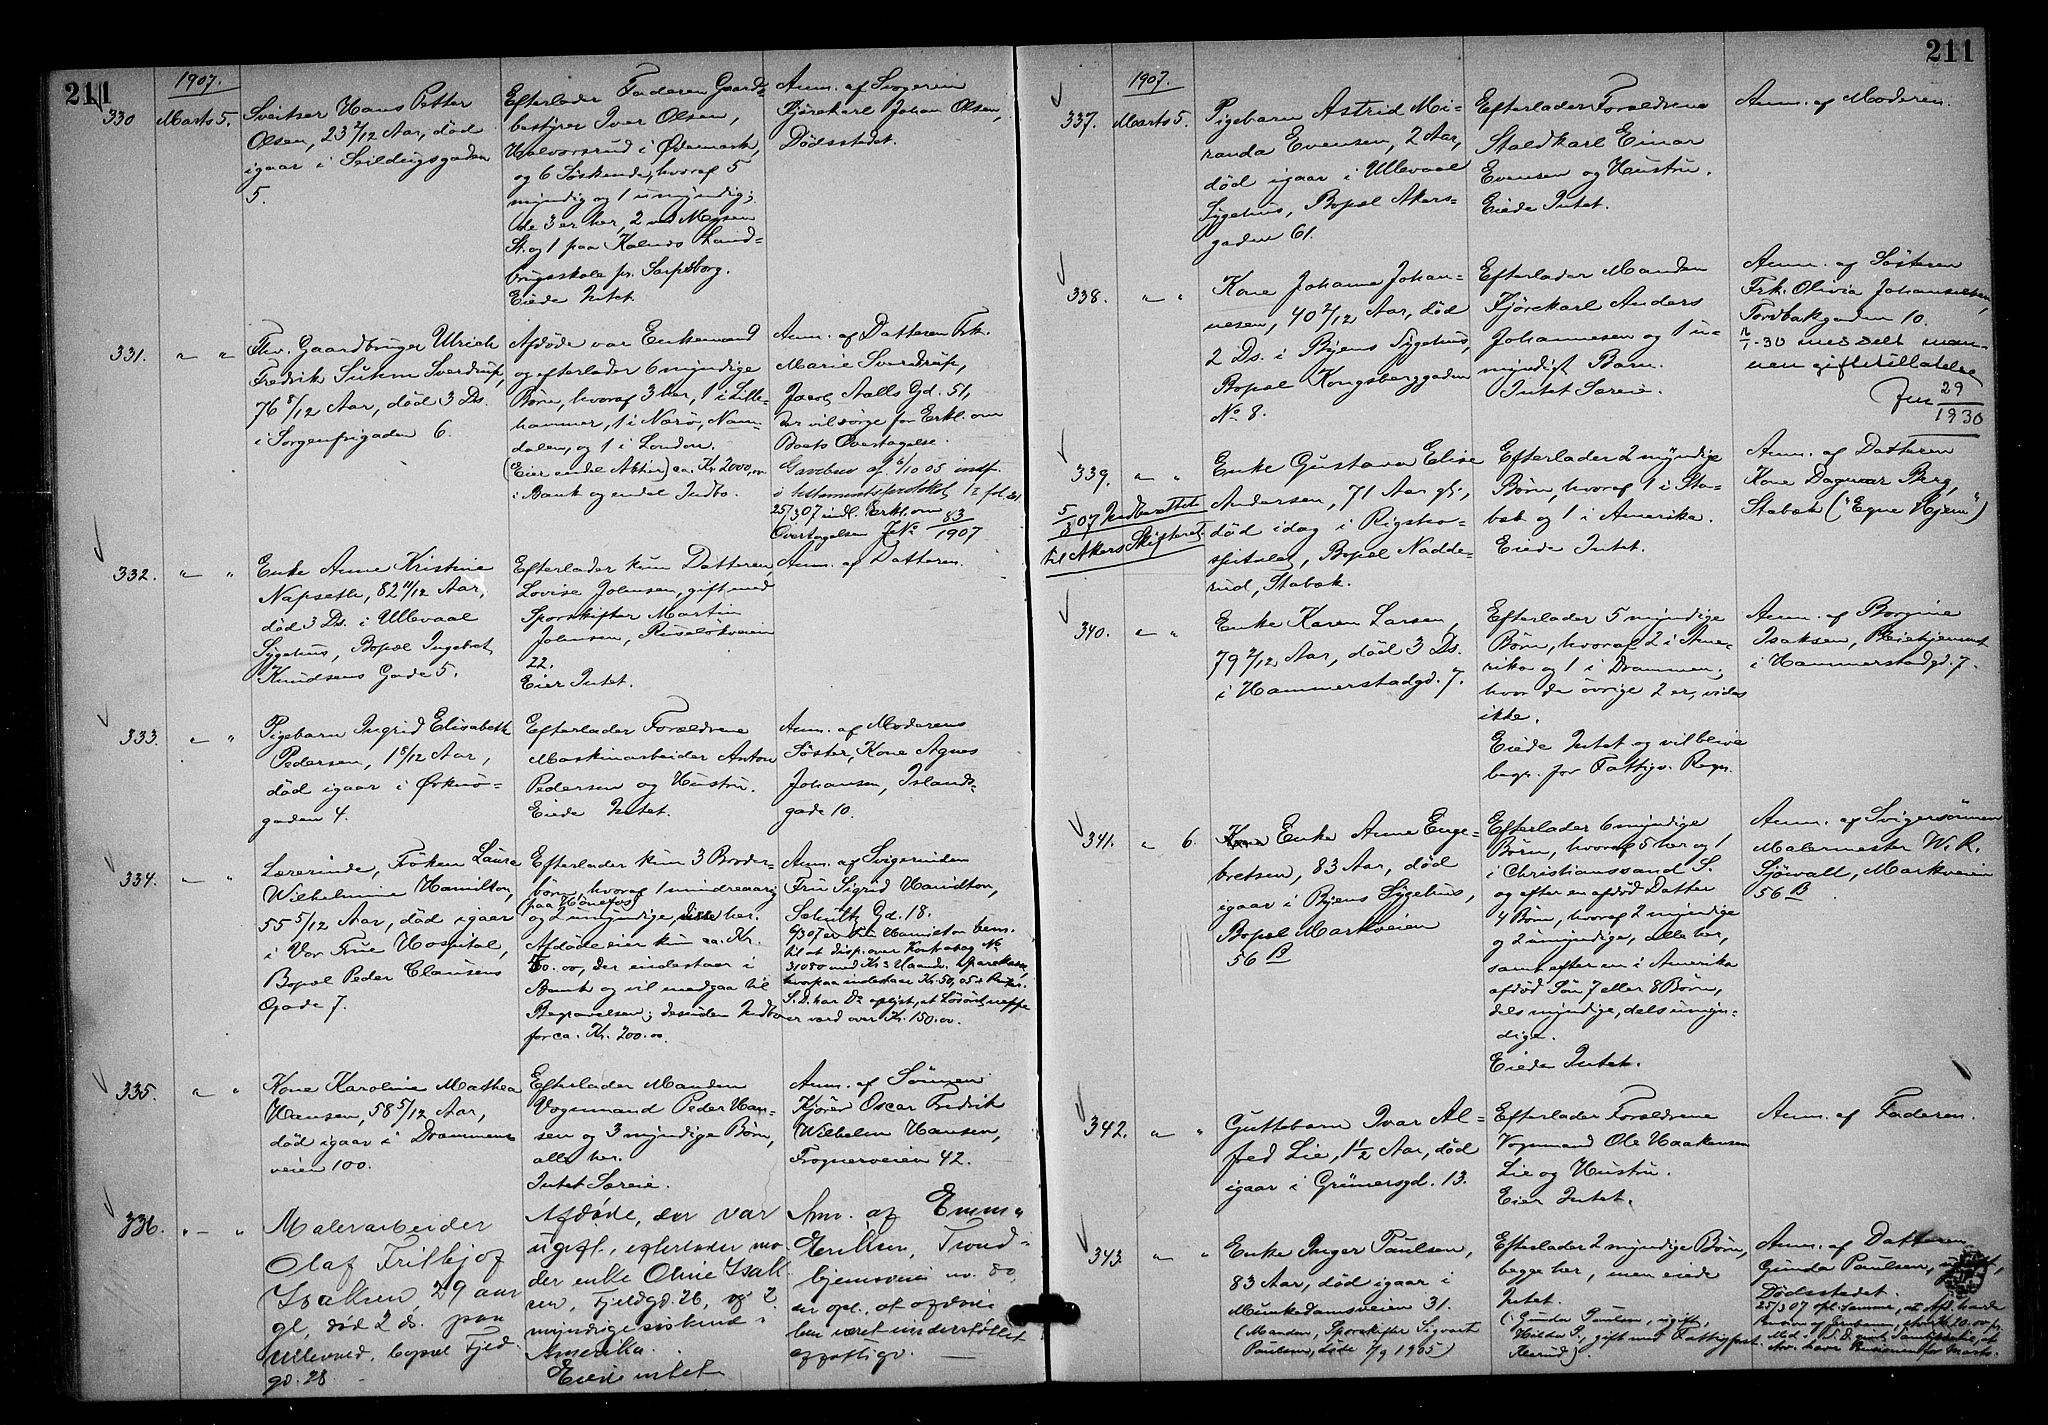 211
1907.
330
Marts 5.
Sveitser Hans Petter
Olsen, 23 2/12 Aar, død
igaar i Seildugsgaden
5.
Efterlader Faderen Gaards-
bestyrer Iver Olsen,
Halvorsrud i Ødemark,
og 6 Søskende, hvoraf 5
myndig og 1 umyndig;
de 3 er her, 2 ved Mysen
St. og 1 paa Kalnes Land-
brugsskole pr. Sarpsborg.
Eiede Intet.
Anm. af Svogeren
Kjørekarl Johan Olsen,
Dødsstedet.
331. " "
Fhv. Gaardbruger Ulrich
Fredrik Suhm Sverdrup,
76 8/12 Aar, død 3 Ds.
i Sorgenfrigaden 6.
Afdøde var Enkemand
og efterlader 6 myndige
Børn, hvoraf 3 her, 1 i Lille-
hammer, 1 i Nærø, Nam-
dalen, og 1 i London.
(Eier endel Aktier) ca. Kr. 2000,00
i Bank og endel Indbo.
Anm. af Datteren Frk.
Marie Sverdrup,
Jacob Aalls Gd. 51,
der vil sørge for Erkl. om
Boets Overtagelse.
Gavebrev af 6/10 05 indf.
i testamentsprotokol 12 fol.
25/3 07 indl. Erkl. om
Overtagelsen JNo 83/1907
332. " "
Enke Anne Kristine
Napseth, 82 11/12 Aar,
død 3 Ds. i Ullevaal
Sygehus, Bopæl Ingebret
Knudsens Gade 5.
Efterlader kun Datteren
Lovise Johnsen, gift med
Sporskifter Martin
Johnsen, Ruseløkveien
22.
Eier Intet.
Anm. af Datteren.
333. " "
Pigebarn Ingrid Elisabeth
Pedersen, 1 8/12 Aar,
død igaar i Orknø-
gaden 4.
Efterlader Forældrene
Maskinarbeider Anton
Pedersen og Hustru.
Eiede Intet.
Anm. af Moderens
Søster, Kone Agnes
Johansen, Islands-
gade 10.
334. " "
Lærerinde, Frøken Laura
Wilhelmine Hamilton,
55 5/12 Aar, død igaar
i Vor Frue Hospital,
Bopæl Peder Clausens
Gade 7.
Efterlader kun 3 Broder-
børn, hvoraf 1 mindreaarig
paa Hønefos
og 2 myndige, disse her.
Afdøde eier kun ca. Kr.
50.00, der indestaar i
Bank og vil medgaa til
Begravelsen; desuden Indbo
for ca. Kr. 200.00.
Anm. af Svigerinden
Fru Sigrid Hamilton,
Schultz Gd. 18.
6/3 07 er Fru Hamilton bem.
til at disp. over Kontrabog No
31080 med Kr.a Haandv. Sparekasse,
hvorpaa indestaar Kr. 50,05 + Renter.
S. D. har Do oplyst, at Løsøret neppe
er værd over Kr. 150.00.
335. " "
Kone Karoline Mathea
Hansen, 58 5/12 Aar,
død igaar i Drammens-
veien 100.
Efterlader Manden
Vognmand Peder Han-
sen og 3 myndige Børn,
alle her.
Intet Særeie.
Anm. af Sønnen
Kjører Oscar Fredrik
Wilhelm Hansen,
Frognerveien 42.
336. " "
Malerarbeider
Olaf Frithjof
Isaksen, 29 aar
gl, død 2 ds. paa
Ullevaal, bopæl Fjeld
gd. 28
Afdøde, der var
ugift, efterlader mo-
der enke Oline Isak
sen, Fjeldgd. 26, og 2
myndige søskend i
Amerika.
Eiede intet
Anm. af Emma
Eriksen, Trond-
hjemsvei no. 80,
der opl. at afdøde
har været understøttet
af fattigv.
211
1907.
337. Marts 5.
Pigebarn Astrid Mi-
randa Evensen, 2 Aar,
død igaar i Ullevaal
Sygehus, Bopæl Akers-
gaden 61.
Efterlader Forældrene
Staldkarl Einar
Evensen og Hustru.
Eiede Intet.
Anm. af Moderen.
338. " "
Kone Johanne Johan-
nesen, 40 2/12 Aar, død
2 Ds. i Byens Sygehus,
Bopæl Kongsberggaden
No 8.
Efterlader Manden
Kjørekarl Anders
Johannesen og 1 u-
myndigt Barn.
Intet Særeie.
Anm. af Søsteren
Frk. Olivia Johannesen,
Torvbakgaden 10.
-30 meddelt man-
nen giftetillatelse
29/1930
339. " "
5/3 07 Indberettet
til Akers Skifteret
Enke Gustava Elise
Andersen, 71 Aar gl.,
død idag i Rigsho-
spitalet, Bopæl Nadde-
rud, Stabæk.
Efterlader 2 myndige
Børn, hvoraf 1 i Sta-
bæk og 1 i Amerika.
Eiede Intet.
Anm. af Datteren
Kone Dagmar Berg,
Stabæk ("Egne Hjem")
340. " "
Enke Karen Larsen,
79 2/12 Aar, død 3 Ds.
i Hammerstadgd. 7.
Efterlader 5 myndige
Børn, hvoraf 2 i Ame-
rika og 1 i Drammen;
hvor de øvrige 2 er, vides
ikke.
Eiede Intet og vil blive
begr. for Fattigv. Regn.
Anm. af Borgine
Isaksen, Pleiehjemmet
i Hammerstadgd. 7.
341. " 6.
Enke Anne Enge-
bretsen, 83 Aar, død
igaar i Byens Sygehus,
Bopæl Markveien
56 B
Efterlader 6 myndige
Børn, hvoraf 5 her og 1
i Christianssand S.
og efter en afdød Datter
4 Børn, hvoraf 2 myndige
og 2 umyndige, alle her,
samt efter en i Amerika
afdød Søn 7 eller 8 Børn,
dels myndige, dels umyn-
dige.
Eiede Intet.
Anm. af Svigersønnen
Malermester W. R.
Sjöwall, Markveien
56 B
342. " "
Guttebarn Ivar Al-
fred Lie, 1 1/2 Aar, død
igaar i Grünersgd. 13.
Efterlader Forældrene
Vognmand Ole Haakensen
Lie og Hustru.
Eier Intet.
Anm. af Faderen.
343. " "
Enke Inger Paulsen,
83 Aar, død igaar i
Munkedamsveien 31.
(Manden, Sporskifter Sigvart
Paulsen, døde 7/9 1905)
Efterlader 2 myndige Børn,
begge her, men eiede
Intet.
(: Gunda Paulsen, ugift,
Hilda P., gift med Fattigforst.
Anm. af Datteren
Gunda Paulsen, ugift,
Dødsstedet.
25/3 07 opl. samme, at Afd. havde